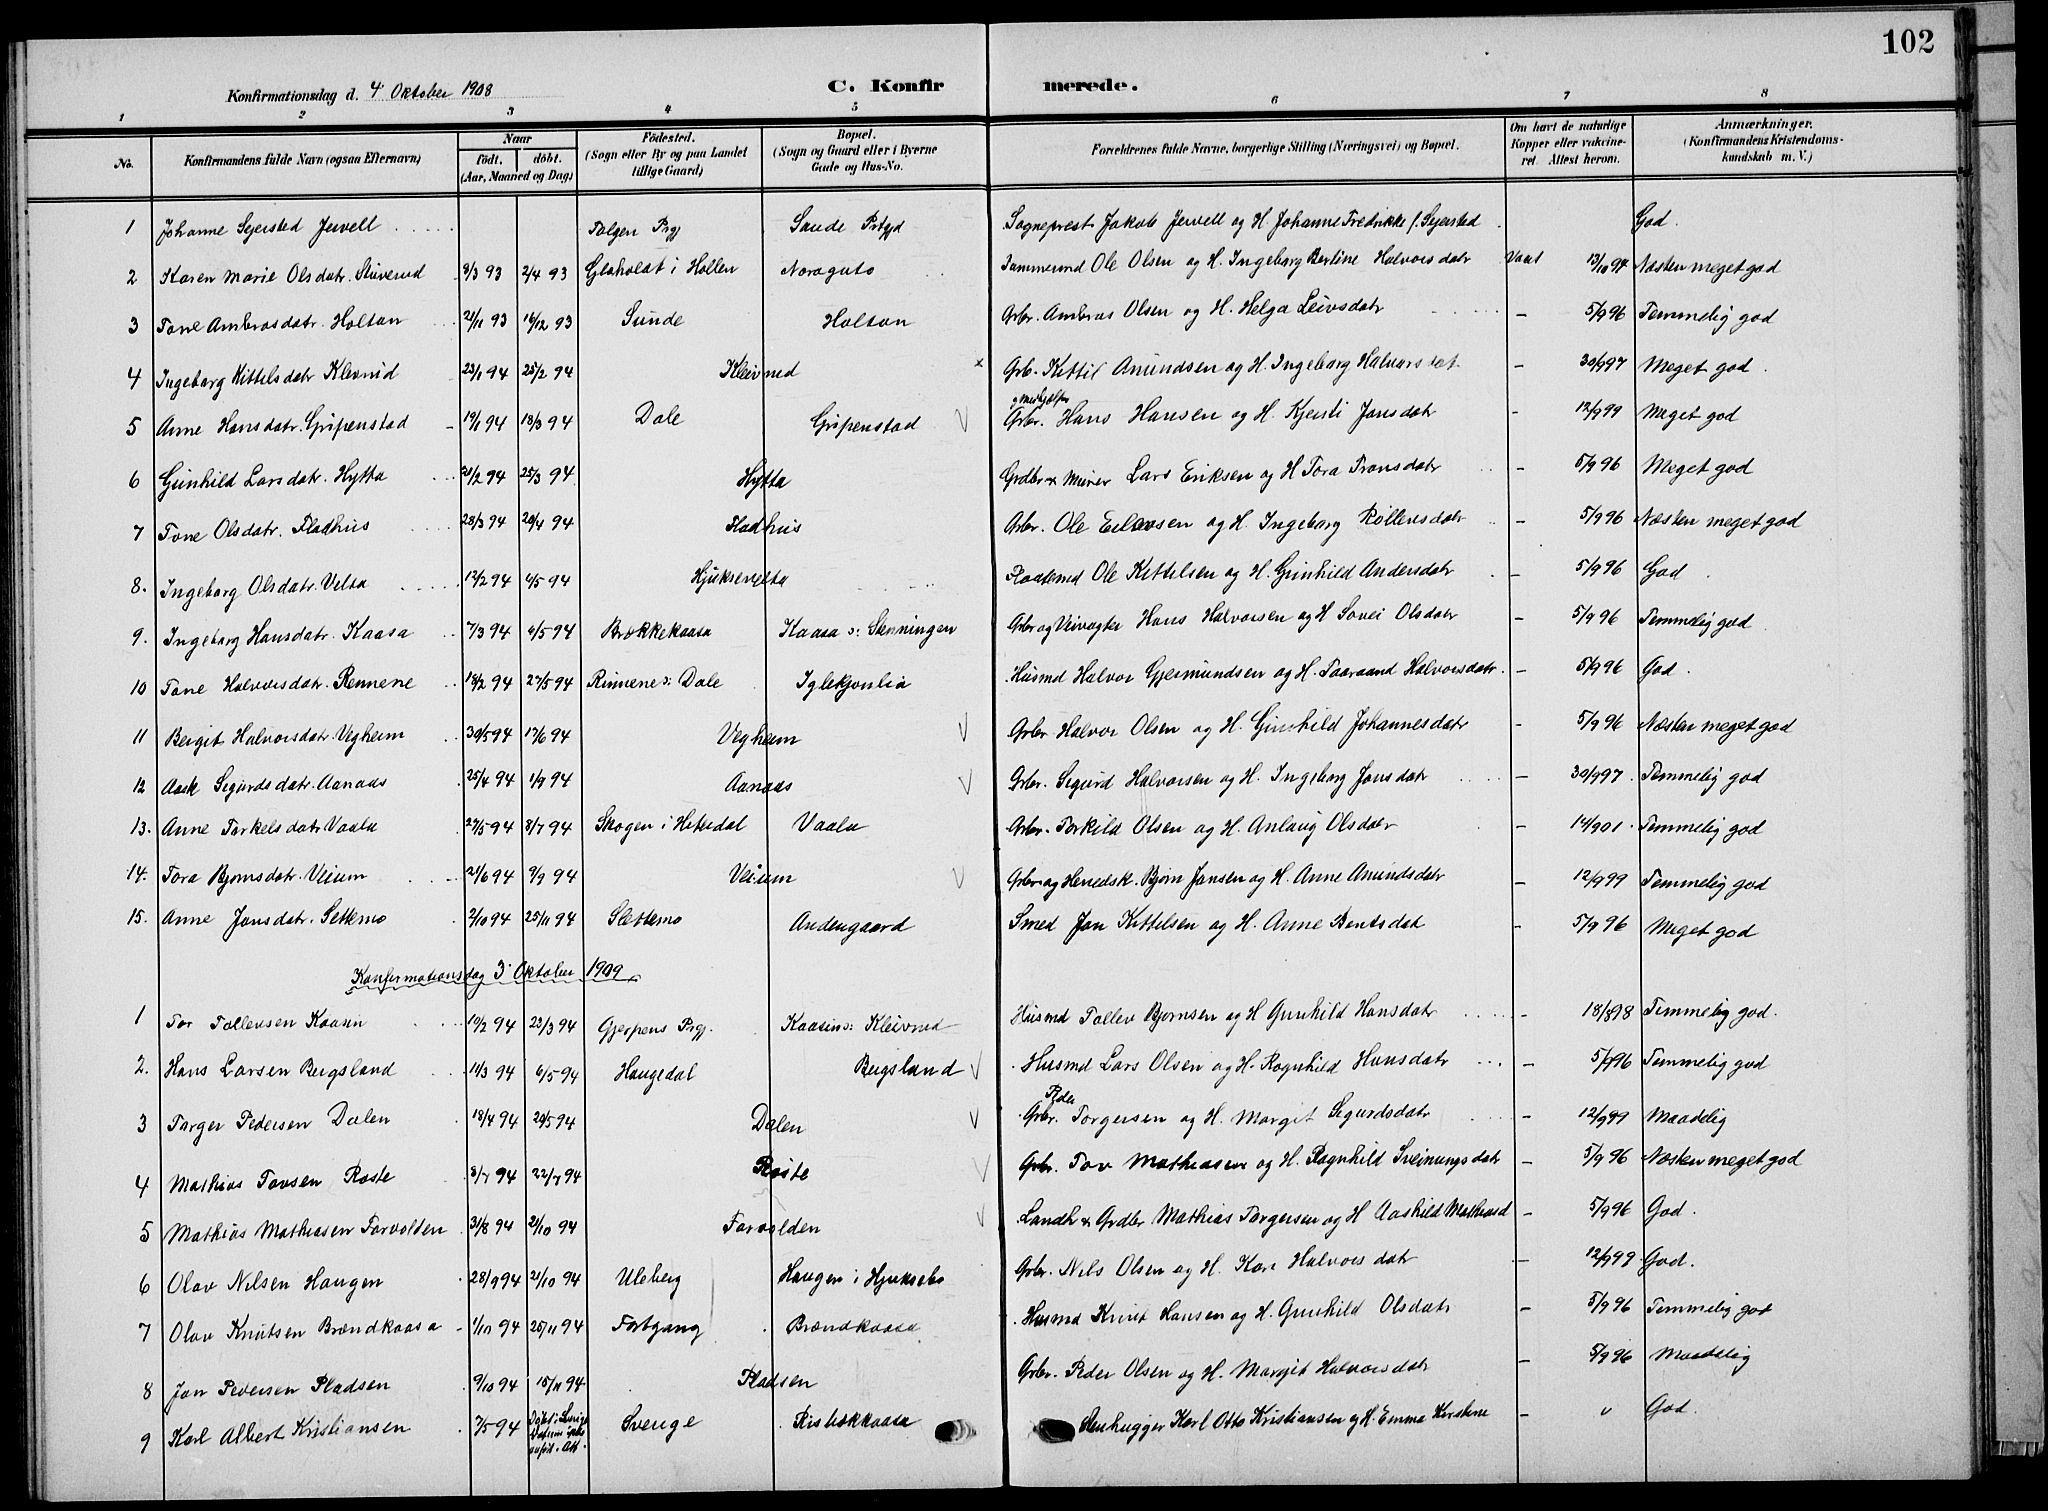 102
Konfirmationsdag d. 4 Oktober 1908 C. Konfirmerede.
1 2 3 4 5 6 7 8
No. Konfirmandens fulde Navn (ogsaa Efternavn) Naar födt. döbt. (Aar, Maaned og Dag) Födested. (Sogn eller By og paa Landet tillige Gaard) Bopæl. (Sogn og Gaard eller i Byerne Gade og Hus-No. Forældrenes fulde Navne, borgerlige Stilling (Næringsvei) og Bopæl. Om havt de naturlige Kopper eller vakcineret. Attest herom. Anmærkninger. (Konfirmandens Kristendomskundskab m. V.)
1 Johanne Sejersted Jervell Tolgen Prgj Saude Prtgjd Sogneprest Jakob Jervell og H. Johanne Fredrikke f. Sejersted God.
2 Karen Marie Olsdatr. Stuverud 8/3 93 2/4 93 i Hollen Noragutu Tømmermd Ole Olsen og H. Ingeborg Bertine Halvorsdatr Vact 13/10 94 Næsten meget god
3 Tone Ambrosdatr. Holtan 21/11 93 16/12 93 Sunde Holtan Grbr. Ambros Olsen og H. Helga Leivsdatr - 5/9 96 Temmelig god
4 Ingeborg Kittilsdatr Klevrud 23/1 94 25/2 94 Kleivrud x Grb. Kittil Amundsen og H. Ingeborg Halvorsdat - 30/9 97 Meget god.
5 Anne Hansdatr. Gripenstad 19/1 94 18/3 94 Dale Gripenstad V Grbr. Hans Hansen og H. Kjersti Jonsdatr - 12/9 99 Meget god
6 Gunhild Larsdatr. Hytta 20/2 94 25/3 94 Hytta Grdbr & Murer Lars Eriksen og H Tora Tronsdatr - 5/9 96 Meget god
7 Tone Olsdatr. Fladhus 28/3 94 20/4 94 Fladhus Grbr. Ole Eilevsen og H. Ingeborg Røllevsdatr - 5/9 96 Næsten meget god
8. Ingeborg Olsdatr. Velta 12/2 94 6/5 94 Hjuksevelta Pladsmd Ole Kittelsen og H. Gunhild Andersdatr - 5/9 96 God
9. Ingeborg Hansdatr. Kaasa 7/3 94 6/5 94 Brekkekaasa Kaasa s: Senningen Grbr og Veivogter Hans Halvorsen og H Sovei Olsdatr - 5/9 96 Temmelig god
10 Tone Halvorsdatr. Rennene 18/2 94 27/5 94 Rinnene s: Dale Iglekjonlia Husmd Halvor Gjermundsen og H. Taaraand Halvorsdatr. - 5/9 96 God.
11 Bergit Halvorsdatr. Vegheim 30/5 94 17/6 94 Vegheim V Grbr. Halvor Olsen og H. Gunhild Johannesdatr - 5/9 96 Næsten meget god
12 Aask Sigurdsdatr. Aanaas 25/4 94 1/9 94 Aanaas V Grbr. Sigurd Halvorsen og H. Ingeborg Jonsdatr - 30/9 97. Temmelig god
13. Anne Torkelsdatr Vaala 27/5 94 8/7 94 Skogen i Hitterdal Vaala Grbr. Torkild Olsen og H. Anlaug Olsdatr - 14/9 01. Temmelig god
14. Tora Bjørnsdatr. Veium 21/6 94 9/9 94 Veium V Grbr og Herredsk. Bjørn Jonsen og H. Anne Amundsdatr - 12/9 99 Temmelig god
15. Anne Jonsdatr. Settemo 2/10 94 25/11 94 Slettemo Andengaard Smed Jon Kittelsen og H. Anne Bentsdatr - 5/9 96 Meget god
Konfirmationsdag 3 Oktober 1909
1 Tor Tollevsen Kaasin 10/2 94 23/3 94 Gjerpens Prgj. Kaasin s: Kleivrud Husmd Tollev Bjørnsen og H Gunhild Hansdatr - 18/8 98 Temmelig god.
2. Hans Larsen Bergsland 11/3 94 6/5 94 Haugedal Bergsland V Husmd Lars Olsen og H. Ragnhild Hansdatr - 5/9 96 Temmelig god
3 Torger Pedersen Dalen 18/4 94 20/5 94 Dalen V Grbr. Peder Torgersen og H. Margit Sigurdsdatr - 12/9 99 Maadelig
4 Mathias Tovsen Roste 3/7 94 22/7 94 Roste V Grbr. Tov Mathiasen og H. Ragnhild Sveinungsdatr - 5/9 96 Næsten meget god
5 Mathias Mathiasen Farvolden 31/8 94 21/10 94 Farvolden V Landh & Grdbr Mathias Torgersen og H Aashild Mathiasd - 5/9 96 God.
6 Olav Nilsen Haugen 28/9 94 21/10 94 Uleberg Haugen i Hjuksebø Grbr. Nils Olsen og H. Kari Halvorsdatr - 12/9 99 God.
7 Olav Knutsen Brændkaasa 1/10 94 25/11 94 Fortgang Brændkaasa Husmd Knut Hansen og H. Gunhild Olsdatr - 5/9 96 Temmelig god
8 Jon Pedersen Pladsen 9/10 94 15/11 94 Pladsen Grbr. Peder Olsen og H. Margit Halvorsdatr - 5/9 96 Maadelig
9 Karl Albert Kristiansen 7/5 94 Døbt i Sverige Datum ikke anført. Att. Sverige Risbækkaasa Stenhugger Karl Otto Kristiansen og H. Emma Kirstine - " God.